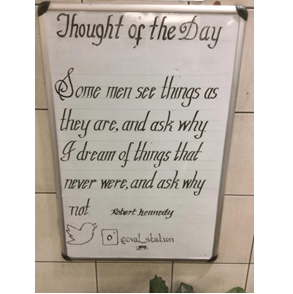 Thought of the Day
Some men see things as
they are, and ask why
I dream of things that
never were, and ask why
not Robert Kennedy
@oval_station